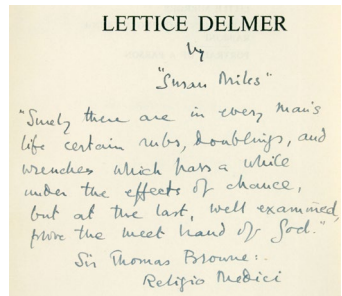 LETTICE DELMER
by
"Susan Miles"
"Surely there are in every man's
life certain rubs, doublings, and
wrenches which pass a while
under the effects of chance,
but at the last, well examined,
prove the meer hand of God."
Sir Thomas Browne:.
Religio Medici